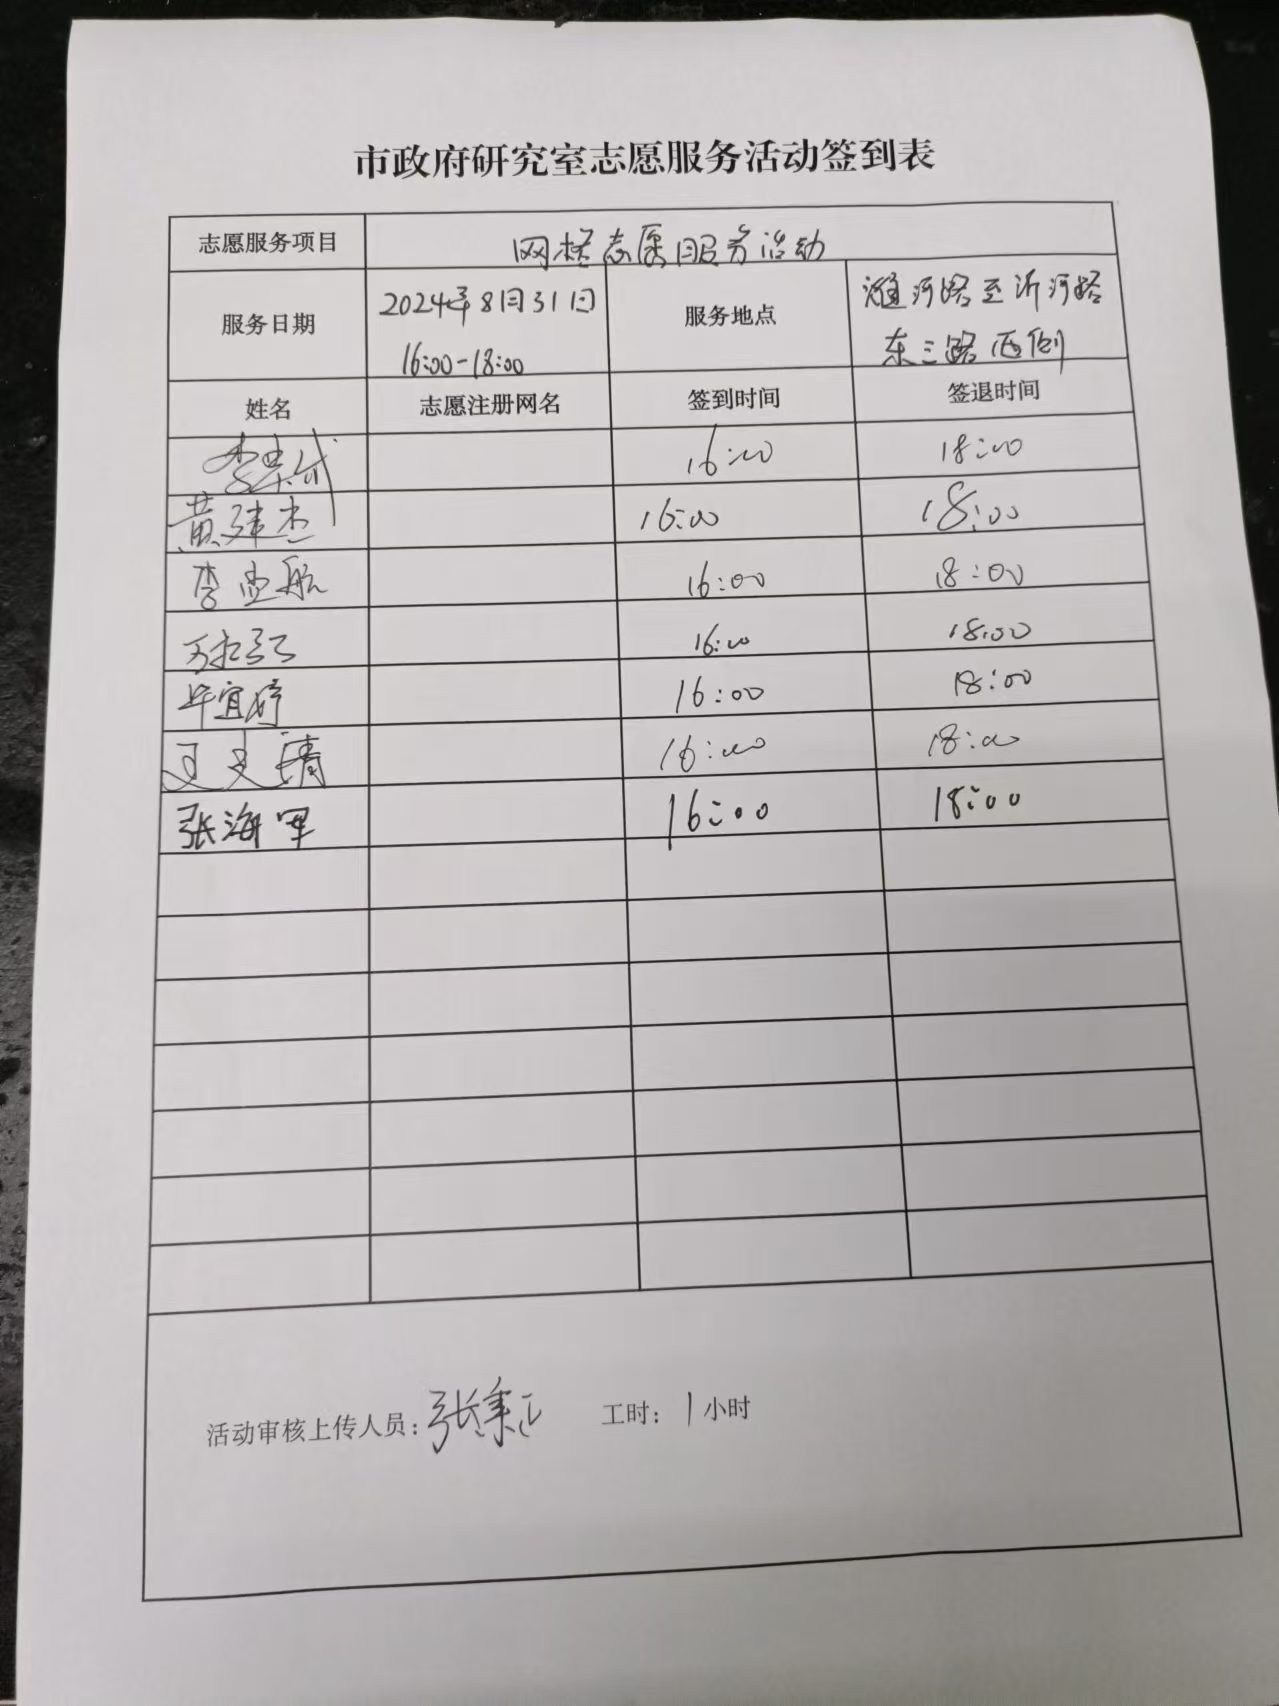 市政府研究室志愿服务活动签到表
志愿服务项目 网格志愿服务活动
服务日期 2024年8月31日 16:00-18:00 服务地点 潍河路至沂河路 东三路西侧
姓名 志愿注册网名 签到时间 签退时间
16:00 18:00
黄建杰 16:00 18:00
李亚航 16:00 18:00
16:00 18:00
毕宜婷 16:00 18:00
王文靖 16:00 18:00
张海军 16:00 18:00
活动审核上传人员：张秉正 工时：1小时